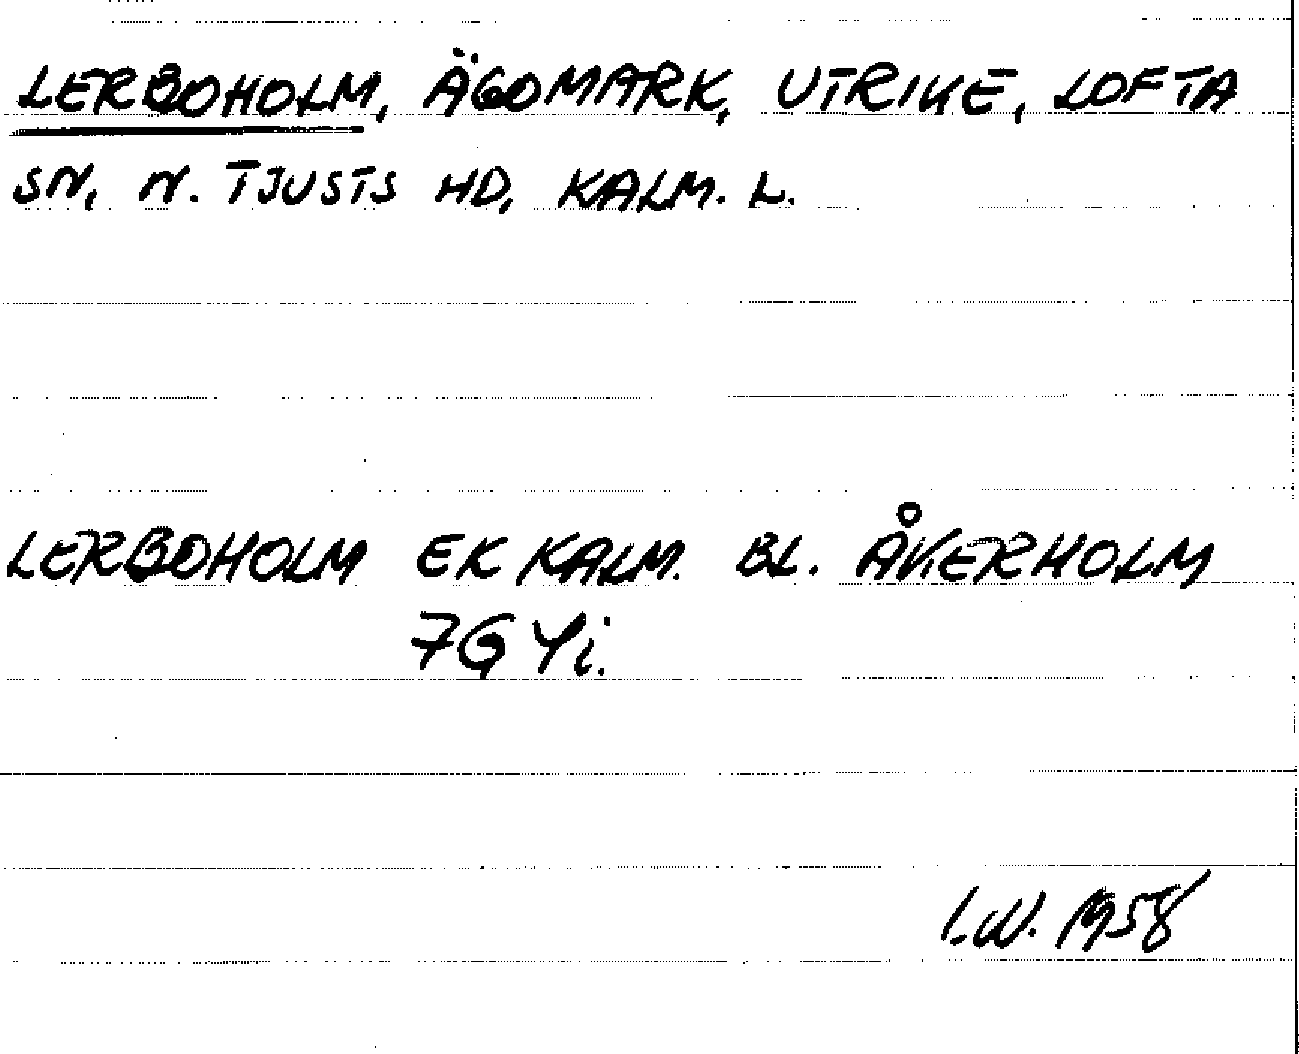 LERBOHOLM, ÄGOMARK, UTRIKE, LOFTA
SN, N. TJUSTS HD, KALM. L.
LERBOHOLM EK KALM. BL. ÅKERHOLM
7G 4i.
I.W. 1958